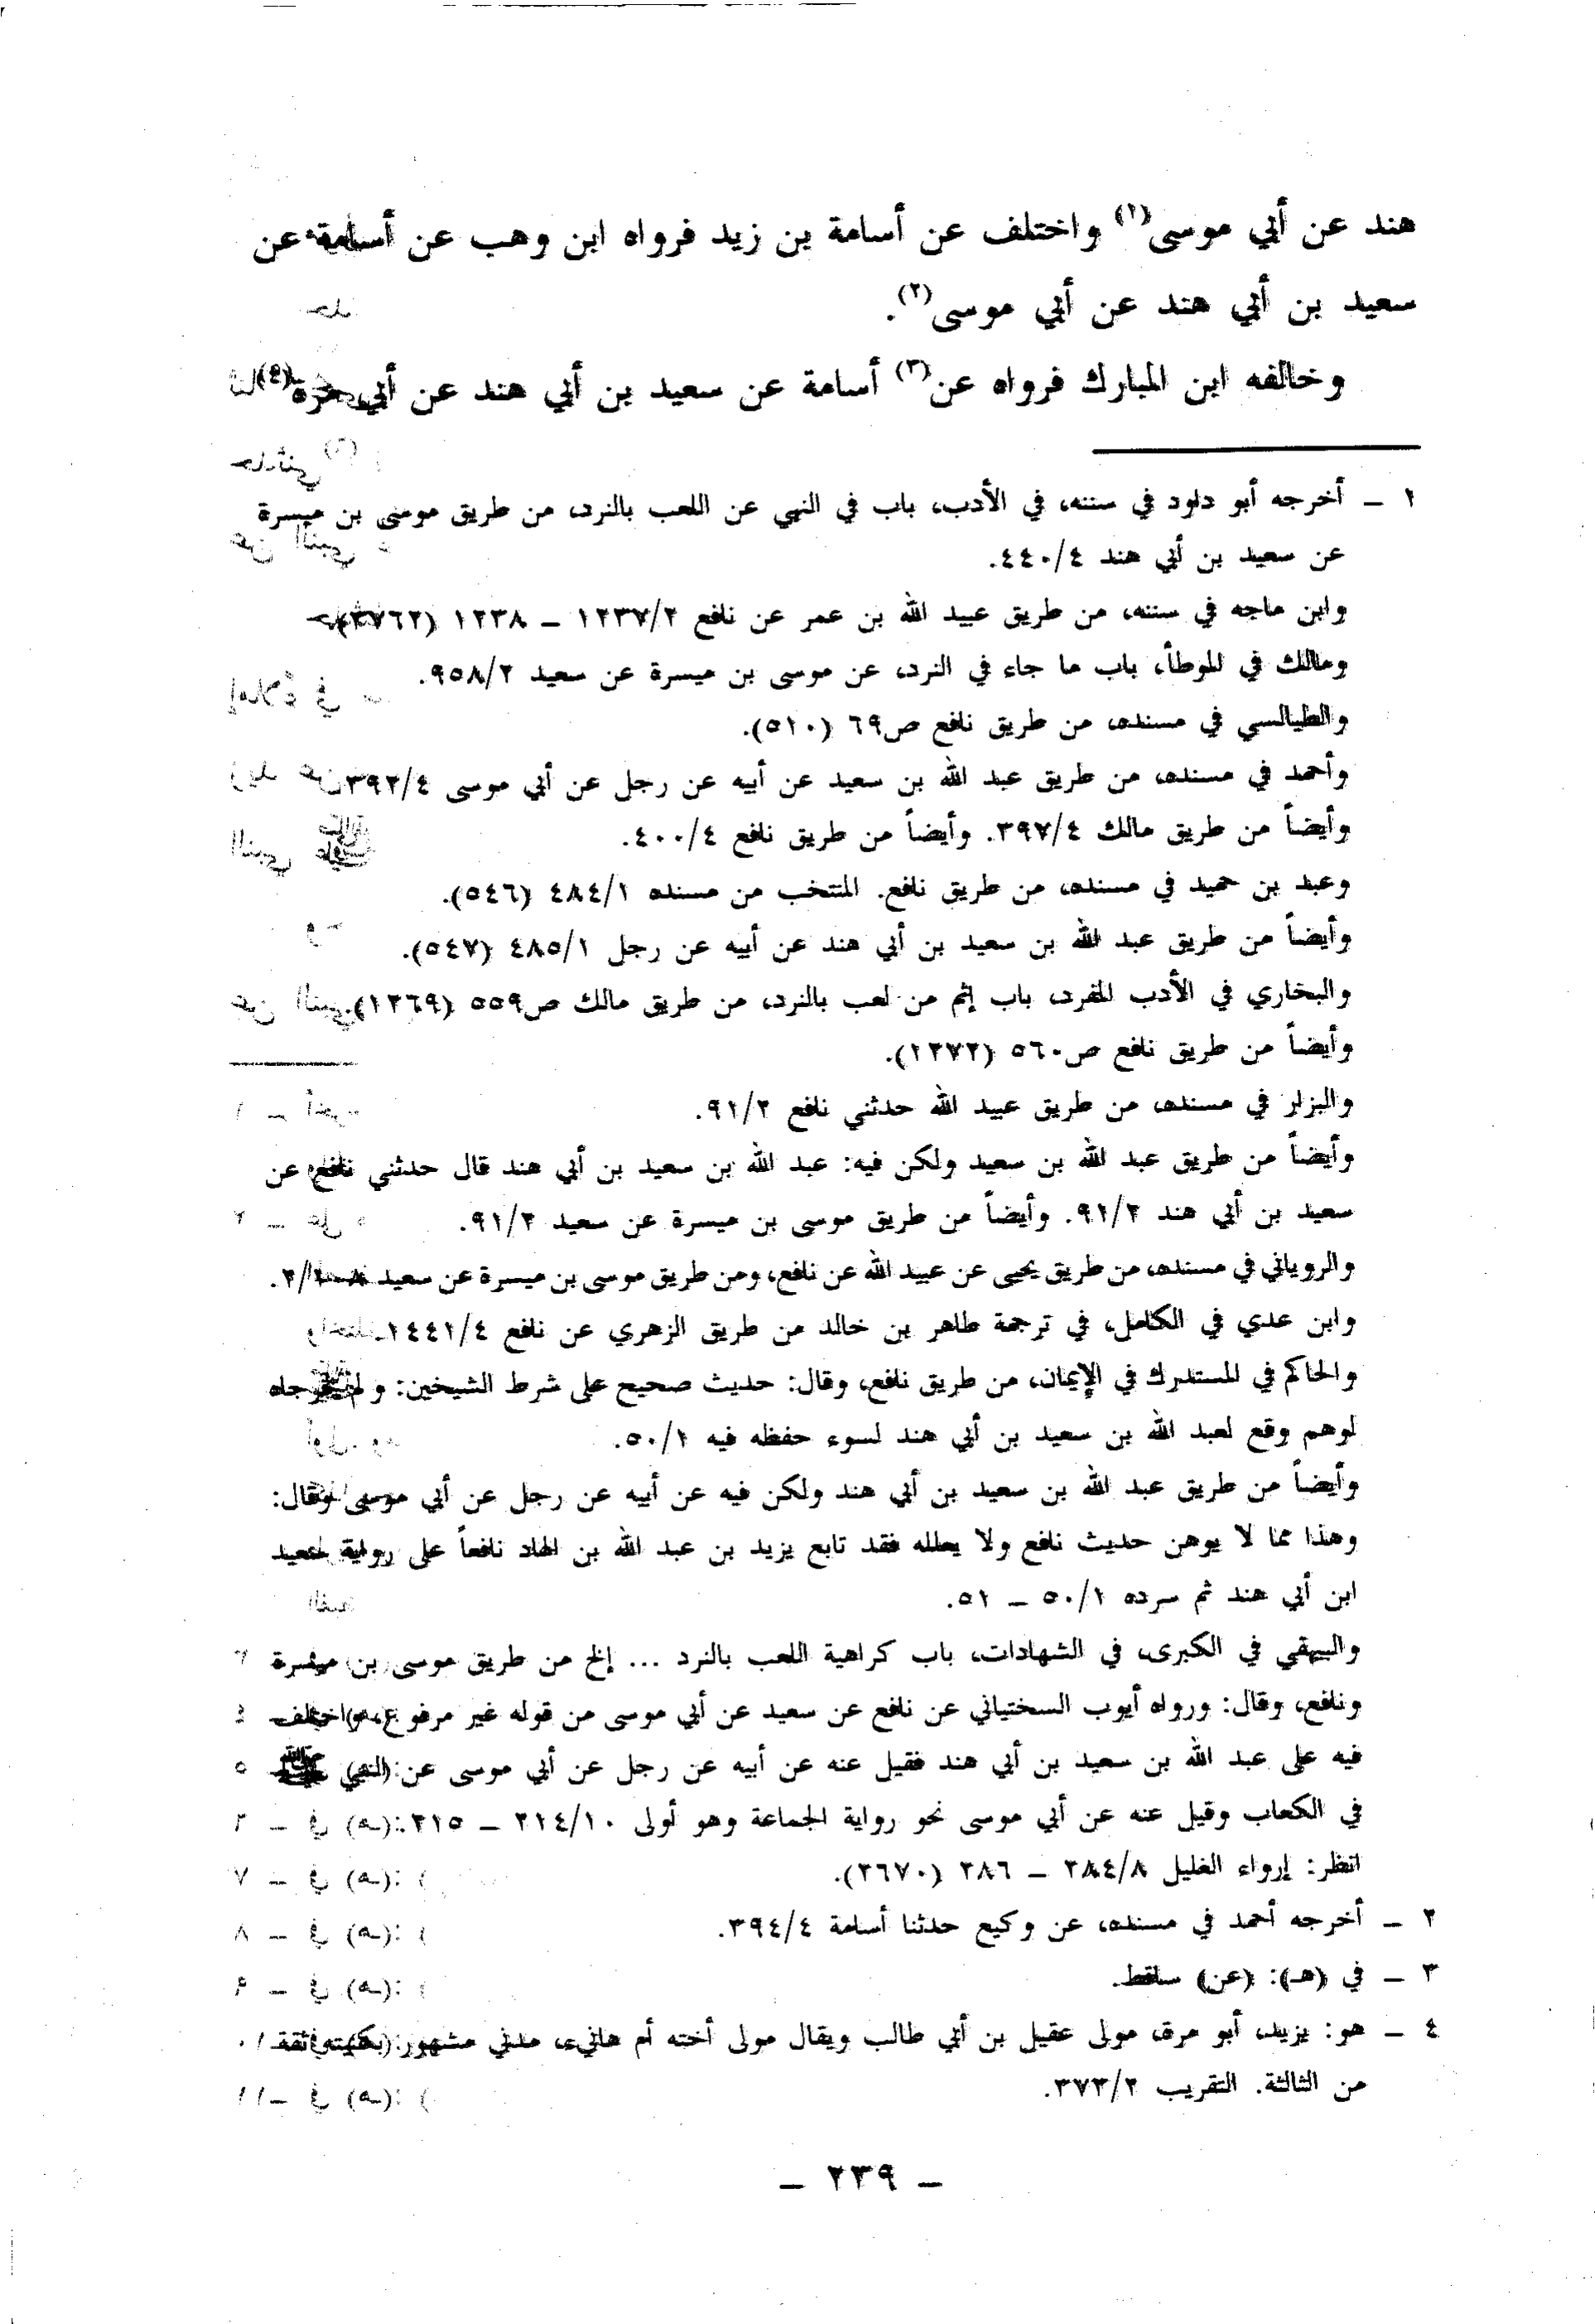 هند عن أبي موسى(١) واختلف عن أسامة بن زيد فرواه ابن وهب عن أسامة عن
سعيد بن أبي هند عن أبي موسى(٢).
وخالفه ابن المبارك فرواه عن(٣) أسامة عن سعيد بن أبي هند عن أبي مرة(٤)
١ – أخرجه أبو داود في سننه، في الأدب، باب في النهي عن اللعب بالنرد، من طريق موسى بن ميسرة
عن سعيد بن أبي هند ٤٤٠/٤.
وابن ماجه في سننه، من طريق عبيد الله بن عمر عن نافع ١٢٣٧/٢ – ١٢٣٨ (٣٧٦٢)
ومالك في الموطأ، باب ما جاء في النرد، عن موسى بن ميسرة عن سعيد ٩٥٨/٢.
والطيالسي في مسنده، من طريق نافع ص٦٩ (٥١٠).
وأحمد في مسنده، من طريق عبد الله بن سعيد عن أبيه عن رجل عن أبي موسى ٣٩٢/٤
وأيضاً من طريق مالك ٣٩٧/٤. وأيضاً من طريق نافع ٤٠٠/٤.
وعبد بن حميد في مسنده، من طريق نافع. المنتخب من مسنده ٤٨٤/١ (٥٤٦).
وأيضاً من طريق عبد الله بن سعيد بن أبي هند عن أبيه عن رجل ٤٨٥/١ (٥٤٧).
والبخاري في الأدب المفرد، باب إثم من لعب بالنرد، من طريق مالك ص٥٥٩ (١٢٦٩).
وأيضاً من طريق نافع ص٥٦٠ (١٢٧٢).
والبزار في مسنده، من طريق عبيد الله حدثني نافع ٩١/٢.
وأيضاً من طريق عبد الله بن سعيد ولكن فيه: عبد الله بن سعيد بن أبي هند قال حدثني نافع عن
سعيد بن أبي هند ٩١/٢. وأيضاً من طريق موسى بن ميسرة عن سعيد ٩١/٢.
والروياني في مسنده، من طريق يحيى عن عبيد الله عن نافع، ومن طريق موسى بن ميسرة عن سعيد
وابن عدي في الكامل، في ترجمة طاهر بن خالد من طريق الزهري عن نافع ١٤٤١/٤
والحاكم في المستدرك في الإيمان، من طريق نافع، وقال: حديث صحيح على شرط الشيخين: ولم يخرجاه
لوهم وقع لعبد الله بن سعيد بن أبي هند لسوء حفظه فيه ٥٠/١.
وأيضاً من طريق عبد الله بن سعيد بن أبي هند ولكن فيه عن أبيه عن رجل عن أبي موسى وقال:
وهذا مما لا يوهن حديث نافع ولا يعلله فقد تابع يزيد بن عبد الله بن الهاد نافعاً على رواية سعيد
ابن أبي هند ثم سرده ٥٠/١ – ٥١.
والبيهقي في الكبرى، في الشهادات، باب كراهية اللعب بالنرد ... إلخ من طريق موسى بن ميسرة
ونافع، وقال: ورواه أيوب السختياني عن نافع عن سعيد عن أبي موسى من قوله غير مرفوع، واختلف
فيه على عبد الله بن سعيد بن أبي هند فقيل عنه عن أبيه عن رجل عن أبي موسى عن النبي ﷺ
في الكعاب وقيل عنه عن أبي موسى نحو رواية الجماعة وهو أولى ٢١٤/١٠ – ٢١٥.
انظر: إرواء الغليل ٢٨٤/٨ – ٢٨٦ (٢٦٧٠).
٢ – أخرجه أحمد في مسنده، عن وكيع حدثنا أسامة ٣٩٤/٤.
٣ – في (هـ): (عن) ساقط.
٤ – هو: يزيد، أبو مرة، مولى عقيل بن أبي طالب ويقال مولى أخته أم هانيء، مدني مشهور بكنيته، ثقة
من الثالثة. التقريب ٣٧٣/٢.
– ٢٣٩ –